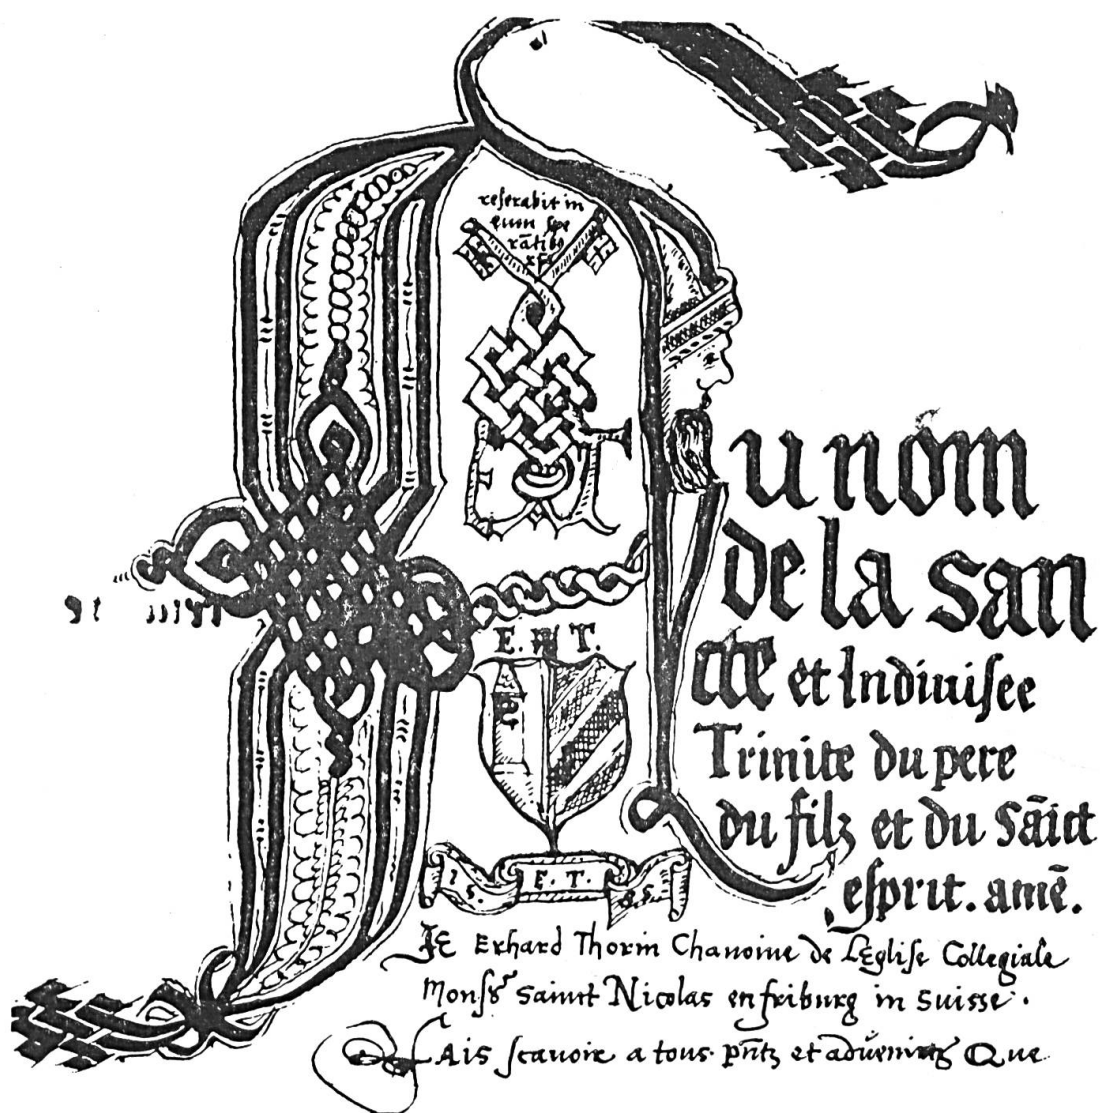 reserabit in
eum spe
rātibꝰ
E. T.
15 E. T. 85
Au nom
de la san
cte et Indiuisee
Trinite du pere
du filz et du Sāict
esprit. amē.
JE Erhard Thorin Chanoine de LEglise Collegiale
Monsr Sainct Nicolas en friburg in Suisse.
FAis scauoir a tous pn̄tz et aduenirs Que